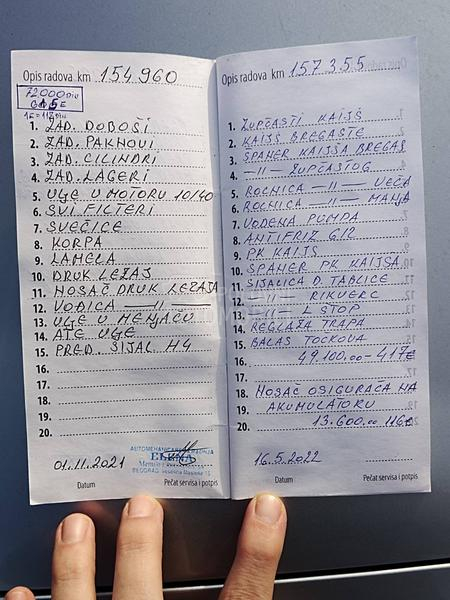 Opis radova km 154.960
72000 DIN
1€=118 DIN
1. ZAD. DOBOŠI
2. ZAD. PAKNOVI
3. ZAD. CILINDRI
4. ZAD. LAGERI
5. ULJE U MOTORU 10/40
6. SVI FILTERI
7. SVEĆICE
8. KORPA
9. LAMELA
10. DRUK LEŽAJ
11. NOSAČ DRUK LEŽAJA
12. VOĐICA —II— ——
13. ULJE U MENJAČU
14. ATE ULJE
15. PRED. SIJAL H4
16.
17.
18.
19.
20.
AUTOMEHANIČARSKA RADNJA
BEOGRAD
01.11.2021
Datum Pečat servisa i potpis
Opis radova km 157.355
1. ZUPČASTI KAIŠ
2. KAIŠ BREGASTE
3. ŠPANER KAIŠA BREGAS
4. —II— ZUPČASTOG
5. ROLNICA —II— VEĆA
6. ROLNICA —II— MANJA
7. VODENA PUMPA
8. ANTIFRIZ G12
9. PK KAIŠ
10. ŠPANER PK KAIŠA
11. SIJALICA D. TABLICE
12. —II— RIKVERC
13. —II— L STOP
14. REGLAŽA TRAPA
15. BALAS TOČKOVA
16. 49.100.00 - 417€
17.
18. NOSAČ OSIGURAČA NA
19. AKUMULATORU
20. 13.600.00 116€
16.5.2022
Datum Pečat servisa i potpis